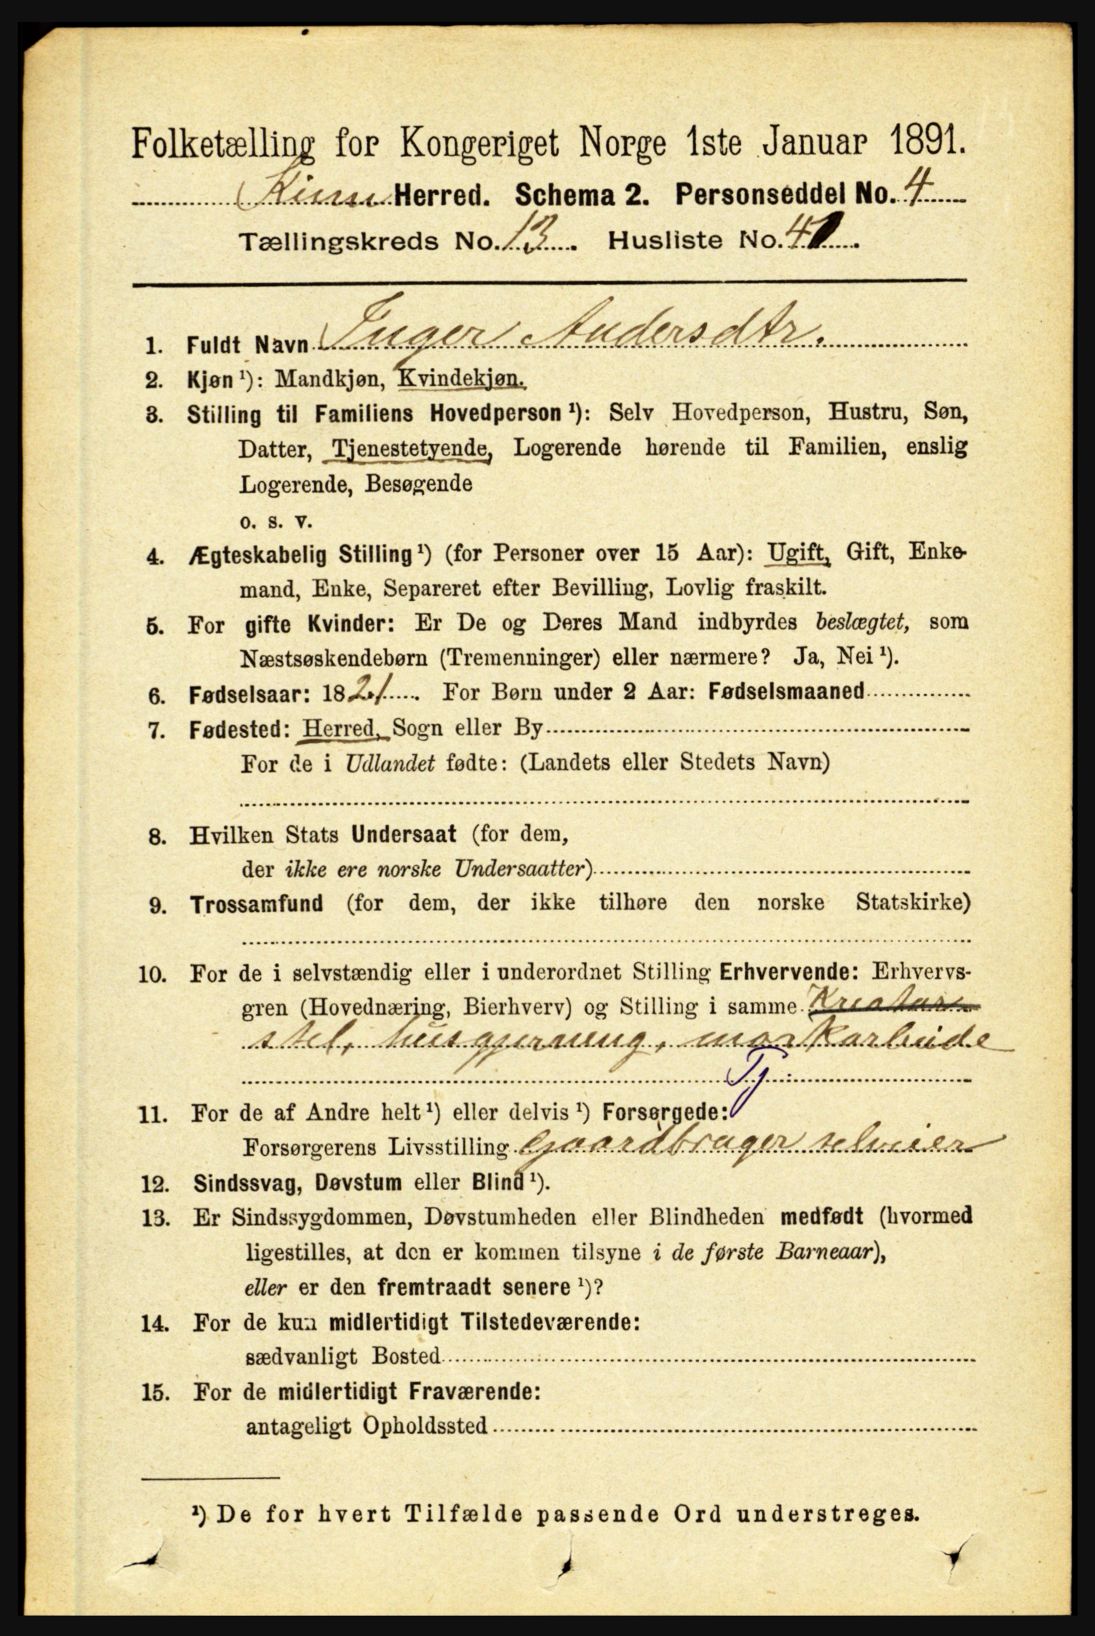 Folketælling for Kongeriget Norge 1ste Januar 1891.
Kinn Herred. Schema 2. Personseddel No. 4
Tællingskreds No. 13. Husliste No. 40.
1. Fuldt Navn Inger Andersdtr.
2. Kjøn¹): Mandkjøn, Kvindekjøn.
3. Stilling til Familiens Hovedperson¹): Selv Hovedperson, Hustru, Søn,
Datter, Tjenestetyende, Logerende hørende til Familien, enslig
Logerende, Besøgende
o. s. v.
4. Ægteskabelig Stilling¹) (for Personer over 15 Aar): Ugift, Gift, Enke-
mand, Enke, Separeret efter Bevilling, Lovlig fraskilt.
5. For gifte Kvinder: Er De og Deres Mand indbyrdes beslægtet, som
Næstsøskendebørn (Tremenninger) eller nærmere? Ja, Nei¹).
6. Fødselsaar: 1821. For Børn under 2 Aar: Fødselsmaaned
7. Fødested: Herred, Sogn eller By
For de i Udlandet fødte: (Landets eller Stedets Navn)
8. Hvilken Stats Undersaat (for dem,
der ikke ere norske Undersaatter)
9. Trossamfund (for dem, der ikke tilhøre den norske Statskirke)
10. For de i selvstændig eller i underordnet Stilling Erhvervende: Erhvervs-
gren (Hovednæring, Bierhverv) og Stilling i samme Kreatur
stel, husgjerning, markarbeide
Tj.
11. For de af Andre helt¹) eller delvis¹) Forsørgede:
Forsørgerens Livsstilling Gaardbruger selveier
12. Sindssvag, Døvstum eller Blind¹).
13. Er Sindssygdommen, Døvstumheden eller Blindheden medfødt (hvormed
ligestilles, at den er kommen tilsyne i de første Barneaar),
eller er den fremtraadt senere¹)?
14. For de kun midlertidigt Tilstedeværende:
sædvanligt Bosted
15. For de midlertidigt Fraværende:
antageligt Opholdssted
¹) De for hvert Tilfælde passende Ord understreges.